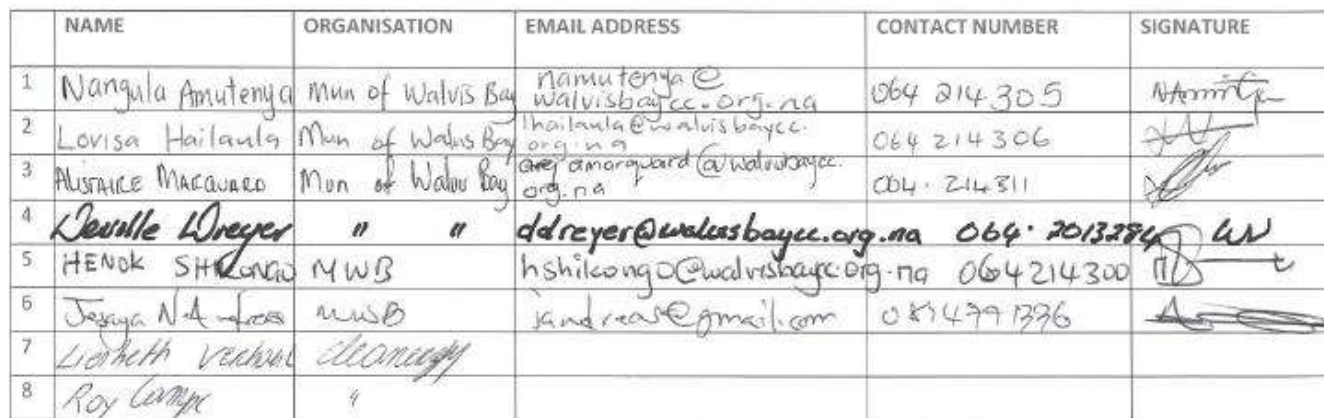 NAME ORGANISATION EMAIL ADDRESS CONTACT NUMBER SIGNATURE
1 Nangula Amutenya Mun of Walvis Bay namutenya@
walvisbaycc.org.na 064 214305
2 Lovisa Hailaula Mun of Walvis Bay lhailaula@walvisbaycc.
org.na 064 214306
3 ALISTAIRE MARQUARD Mun of Walvis Bay amarquard@walvisbaycc.
org.na 064. 214311
4 Deville Dreyer " " ddreyer@walvisbaycc.org.na 064.
5 HENOK SHIKONGO MWB hshikongo@walvisbaycc.org.na 064214300
6 MWB jandreas@gmail.com
7 cleanergy
8 Roy "